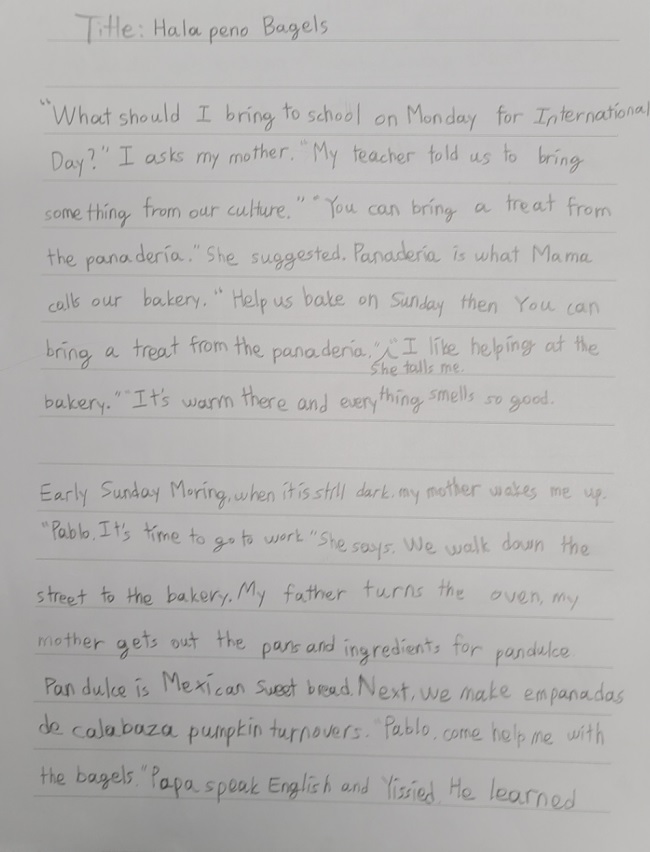 Title: Hala peno Bagels
"What should I bring to school on Monday for International
Day?" I asks my mother. "My teacher told us to bring
something from our culture." "You can bring a treat from
the panadería." She suggested. Panadería is what Mama
calls our bakery. "Help us bake on Sunday then You can
bring a treat from the panaderia." I like helping at the
She talls me.
bakery."" It's warm there and everything smells so good.
Early Sunday Moring, when it is still dark. my mother wakes me up.
"Pablo. It's time to go to work "She says. We walk down the
street to the bakery. My father turns the oven, my
mother gets out the pans and ingredients for pandulce.
Pan dulce is Mexican sweet bread. Next, we make empanadas
de calabaza pumpkin turnovers. "Pablo, come help me with
the bagels. "Papa speak English and Yissied. He learned